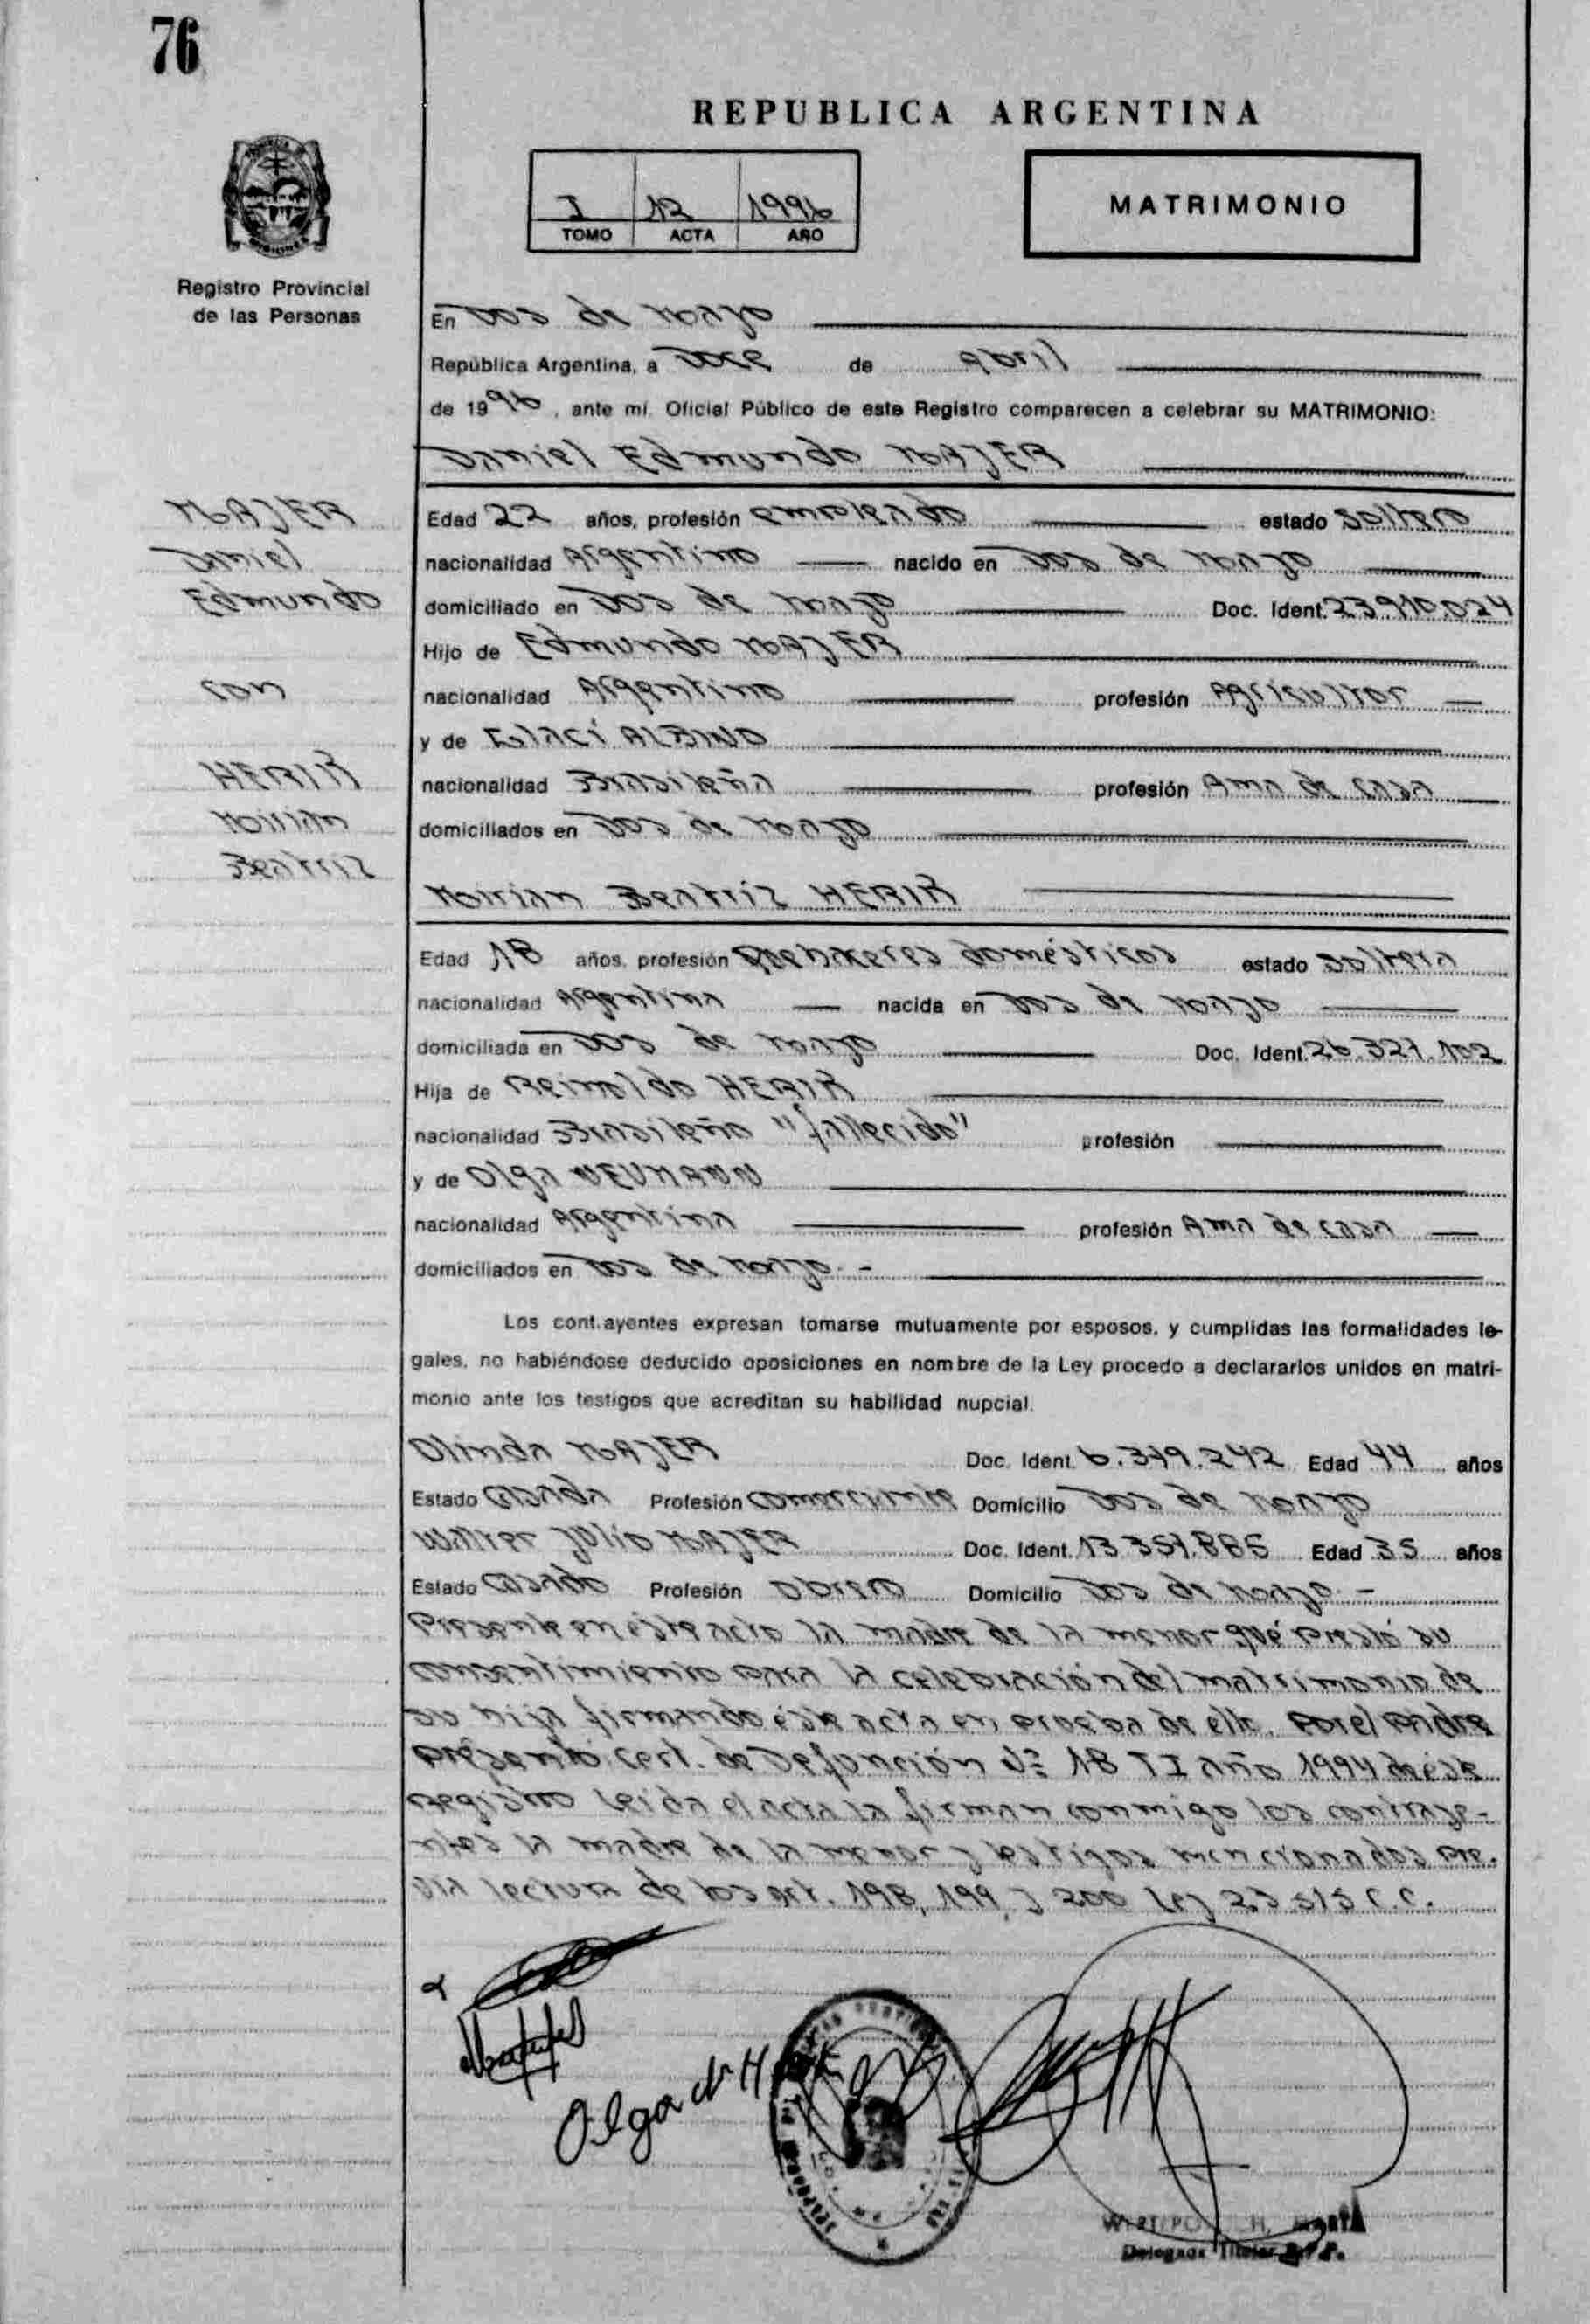 76
REPUBLICA ARGENTINA
I 12 1996
TOMO ACTA AÑO
MATRIMONIO
Registro Provincial
de las Personas
En Dos de Mayo
República Argentina, a Doce de Abril
de 1996, ante mí Oficial Público de este Registro comparecen a celebrar su MATRIMONIO:
Daniel Edmundo MAJER
MAJER
Daniel
Edmundo
con
HERIK
Mirian
Beatriz
Edad 22 años, profesión empleado estado soltero
nacionalidad Argentino nacido en Dos de Mayo
domiciliado en Dos de Mayo Doc. Ident. 23.910.024
Hijo de Edmundo MAJER
nacionalidad Argentino profesión Agricultor
y de ALBINO
nacionalidad Brasileña profesión Ama de casa
domiciliados en Dos de Mayo
Mirian Beatriz HERIK
Edad 18 años, profesión Quehaceres domésticos estado soltera
nacionalidad Argentina nacida en Dos de Mayo
domiciliada en Dos de Mayo Doc. Ident. 26.327.102
Hija de Reinoldo HERIK
nacionalidad Brasileño "fallecido" profesión
y de Olga NEUMANN
nacionalidad Argentina profesión Ama de casa
domiciliados en Dos de Mayo.-
Los contrayentes expresan tomarse mutuamente por esposos, y cumplidas las formalidades le-
gales, no habiéndose deducido oposiciones en nombre de la Ley procedo a declararlos unidos en matri-
monio ante los testigos que acreditan su habilidad nupcial.
Olinda MAJER Doc. Ident. 6.379.242 Edad 44 años
Estado Casada Profesión comerciante Domicilio Dos de Mayo
Walter Julio MAJER Doc. Ident. 13.357.885 Edad 35 años
Estado Casado Profesión Obrero Domicilio Dos de Mayo.-
Presente en éste acto la madre de la menor qué prestó su
consentimiento para la celebración del matrimonio de
su hija firmando éste acta en prueba de ello. Por el padre
presentó cert. de Defunción Nº 18 TI año 1994 de éste
registro leída el acta la firman conmigo los contraye-
ntes la madre de la menor y testigos mencionados pre-
via lectura de los art. 198, 199, y 200 Ley 23.515 C.C.
Olga
Delegada Titular R.P.P.